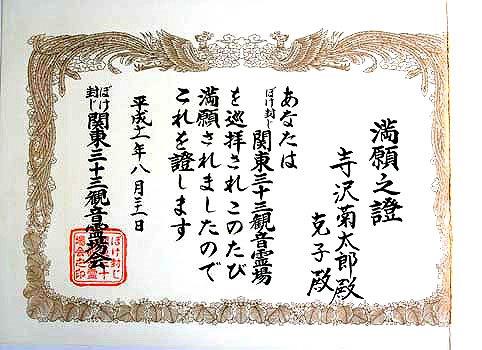 満願之證
寺沢菊太郎殿
克子殿
あなたは
ぼけ封じ関東三十三観音霊場
を巡拝されこのたび
満願されましたので
これを證します
平成十一年八月三十一日
ぼけ封じ関東三十三観音霊場会